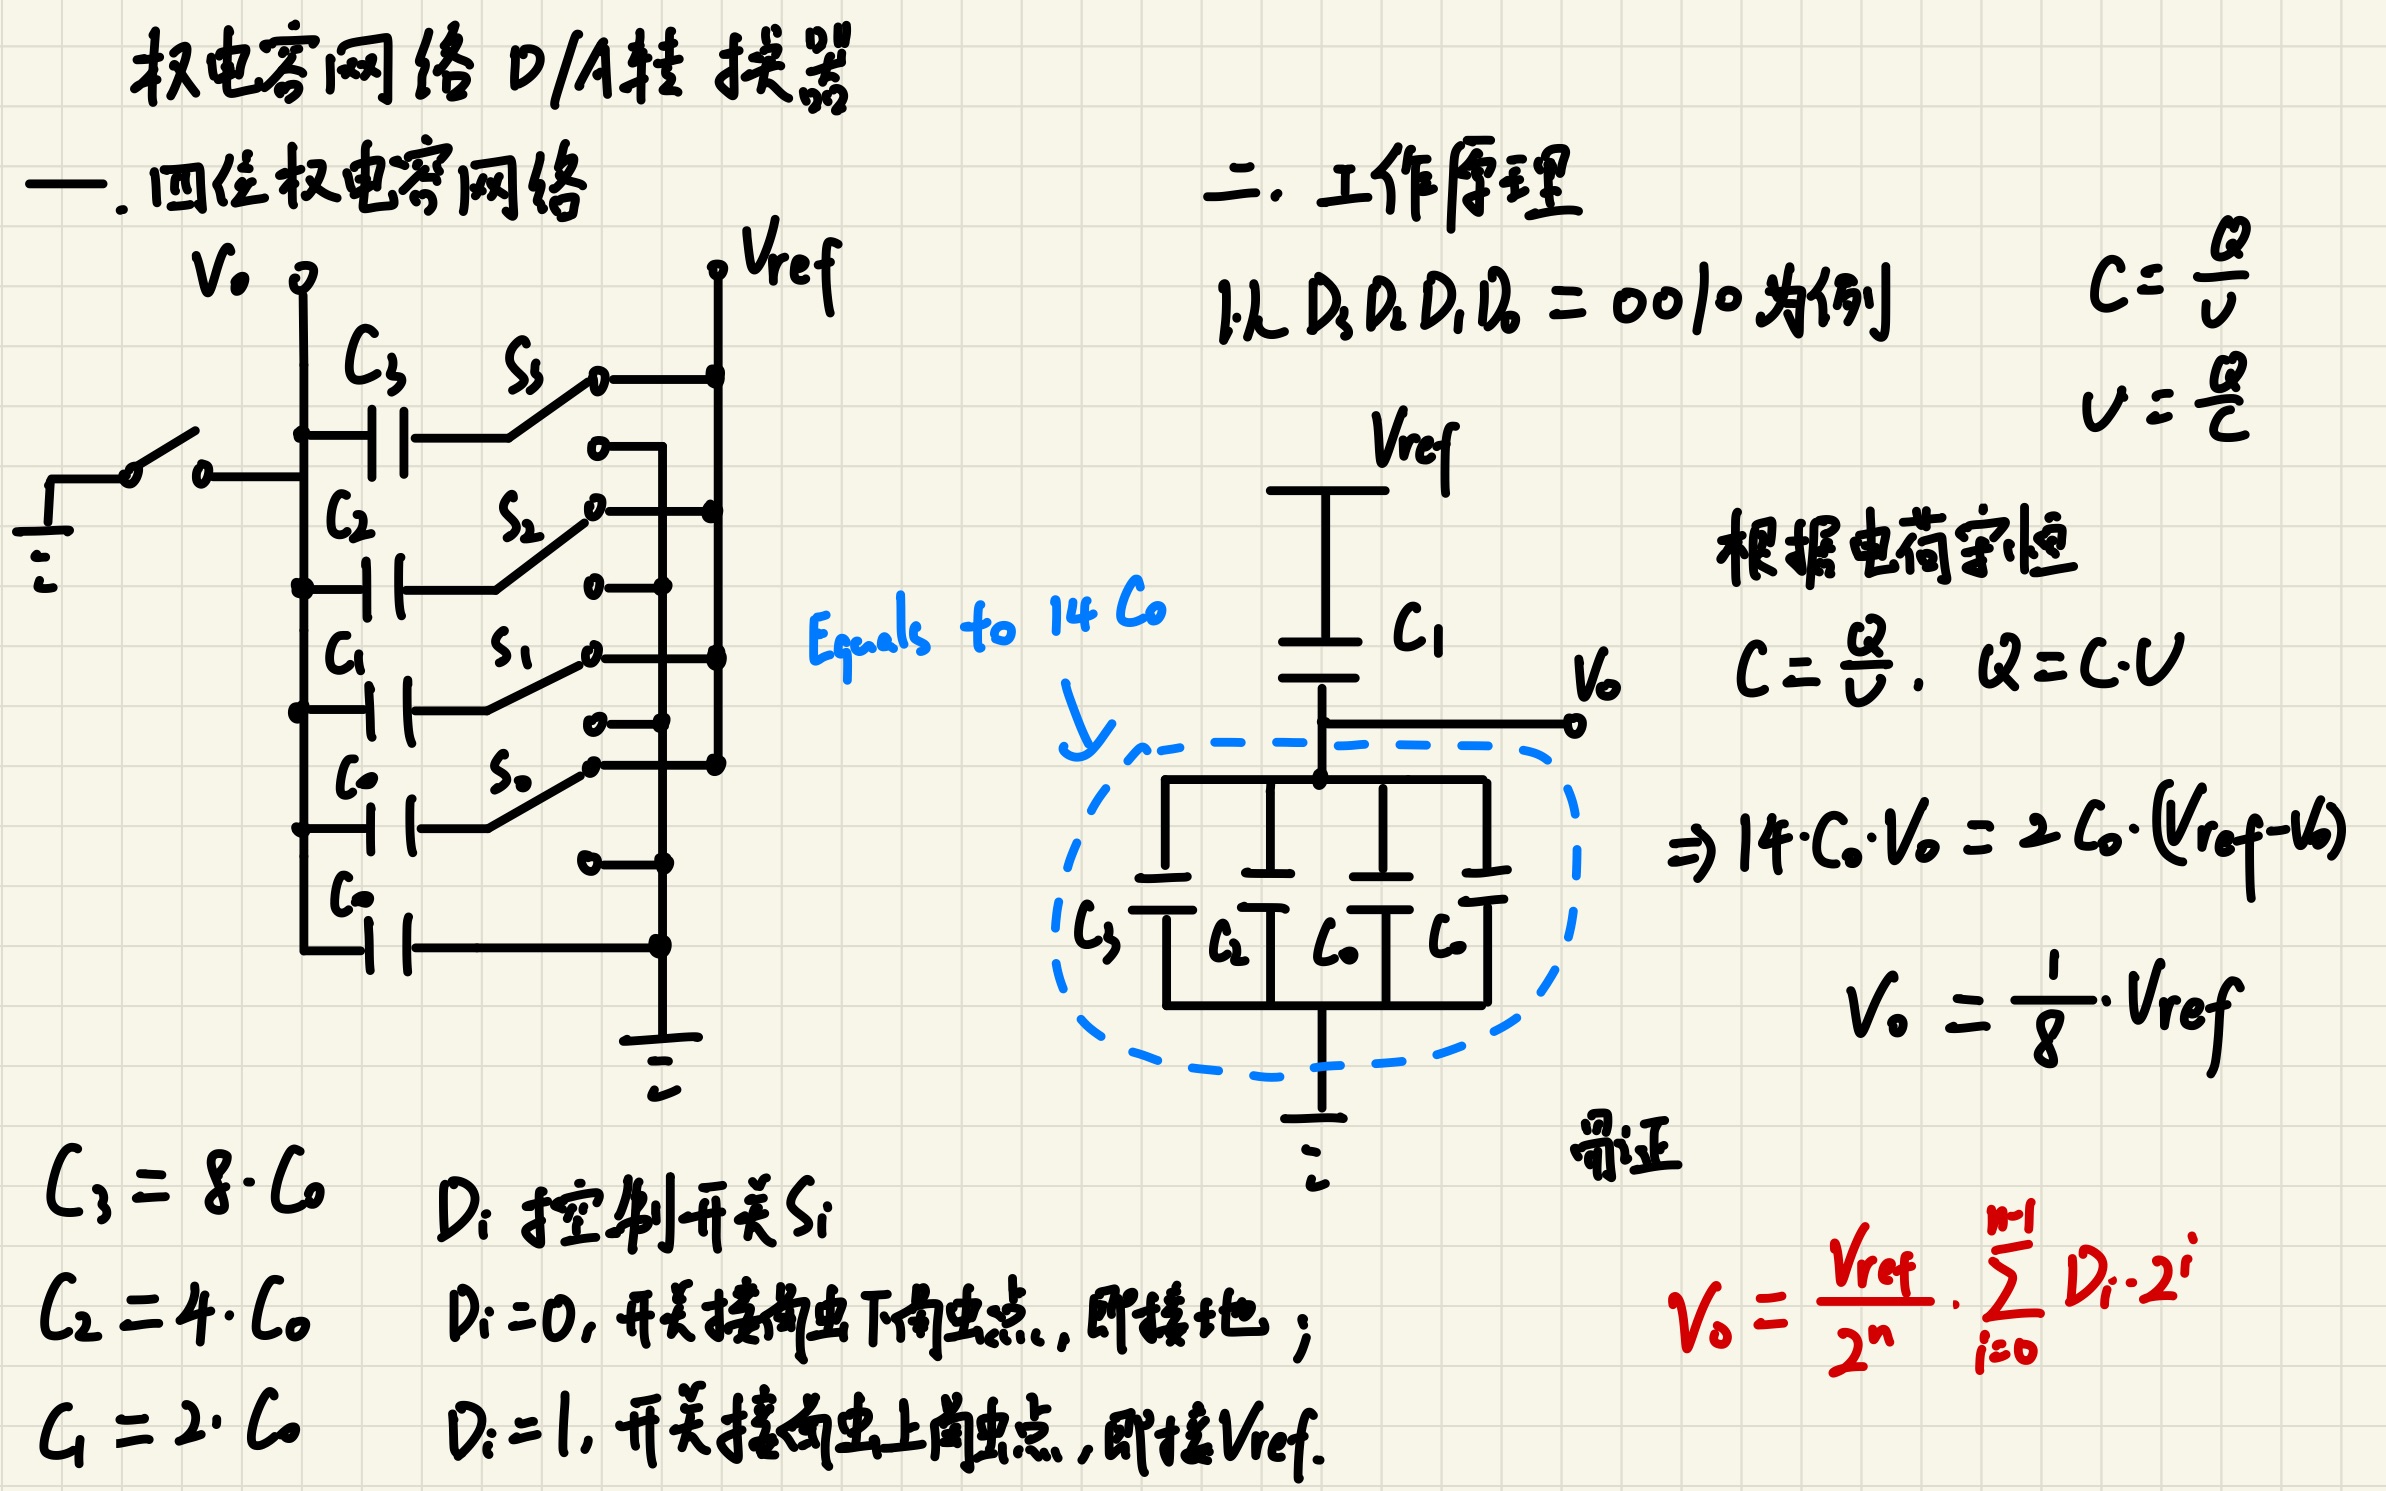 权电容网络 D/A转换器
一. 四位权电容网络
V₀
Vref
C₃
S₃
C₂
S₂
C₁
S₁
C₀
S₀
C₀
C₃ = 8·C₀
C₂ = 4·C₀
C₁ = 2·C₀
Di 控制开关Si
Di=0, 开关接触电下触电点, 即接地;
Di=1, 开关接触电上触电点, 即接Vref.
二. 工作原理
1.以 D₃D₂D₁D₀ = 0010为例
C = Q/U
U = Q/C
Vref
C₁
V₀
Equals to 14 C₀
C₃ C₂ C₀ C₀
根据电荷守恒
C = Q/U. Q = C·U
⇒ 14·C₀·V₀ = 2C₀·(Vref-V₀)
V₀ = 1/8 · Vref
V₀ = Vref/2ⁿ · ∑_{i=0}^{n-1} Di·2ⁱ